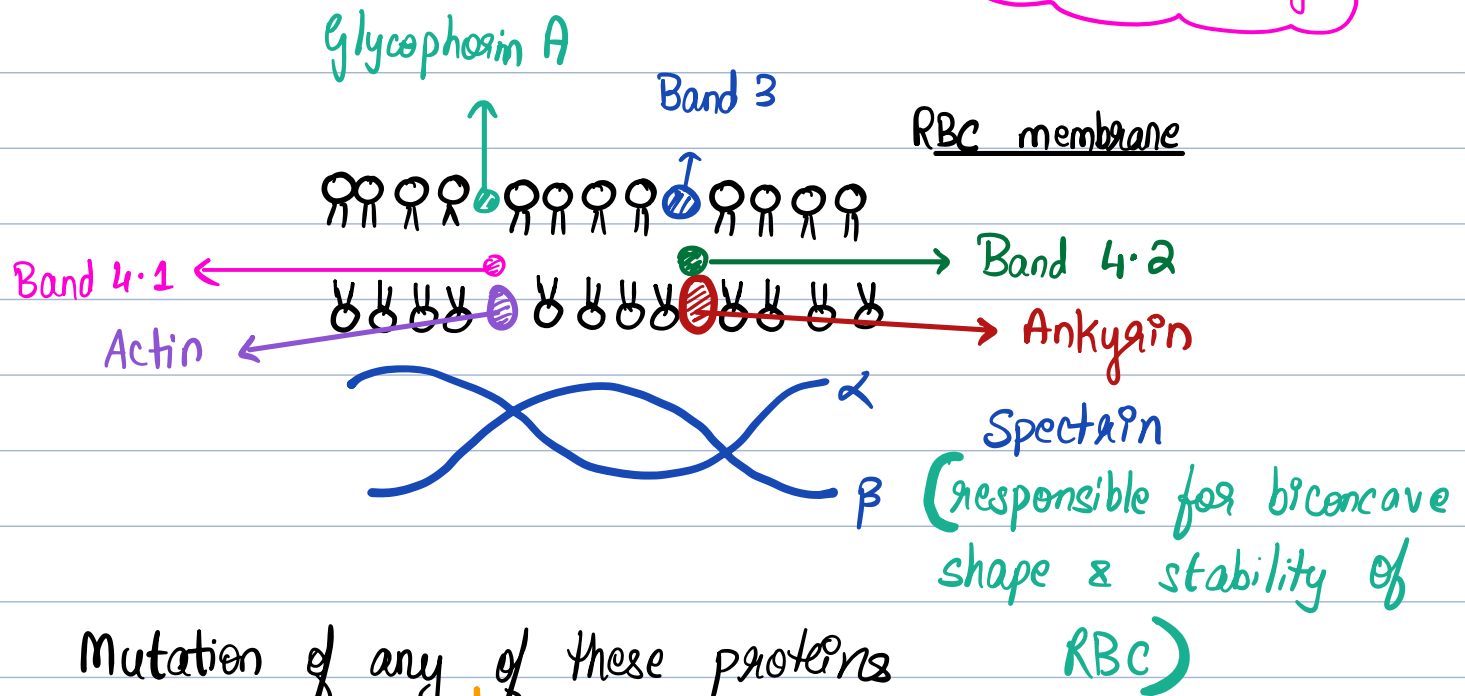 Glycophorin A
Band 3
RBC membrane
Band 4.1
Band 4.2
Actin
Ankyrin
α
Spectrin
β
(responsible for biconcave
shape & stability of
RBC)
Mutation of any of these proteins